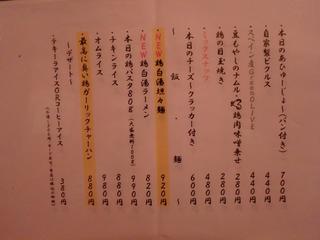 ・本日のあひゅーじょ～(パン付き) 700円
・自家製ピクルス 440円
・スペイン産GreenOLIVE 440円
・豆もやしのナムル・鶏肉味噌乗せ 280円
・鶏の目玉焼き 280円
・ミックスナッツ 480円
・本日のチーズ～クラッカー付き 600円
～ 飯 麺 ～
・NEW 鶏白湯坦々麺 920円
・NEW 鶏白湯ラーメン 820円
・本日の鶏パスタ80g(大盛無料100g) 990円
・チキンライス 880円
・オムライス 980円
・最高に臭い鶏ガーリックチャーハン 880円
～デザート～
・テキーラアイスORコーヒーアイス 380円